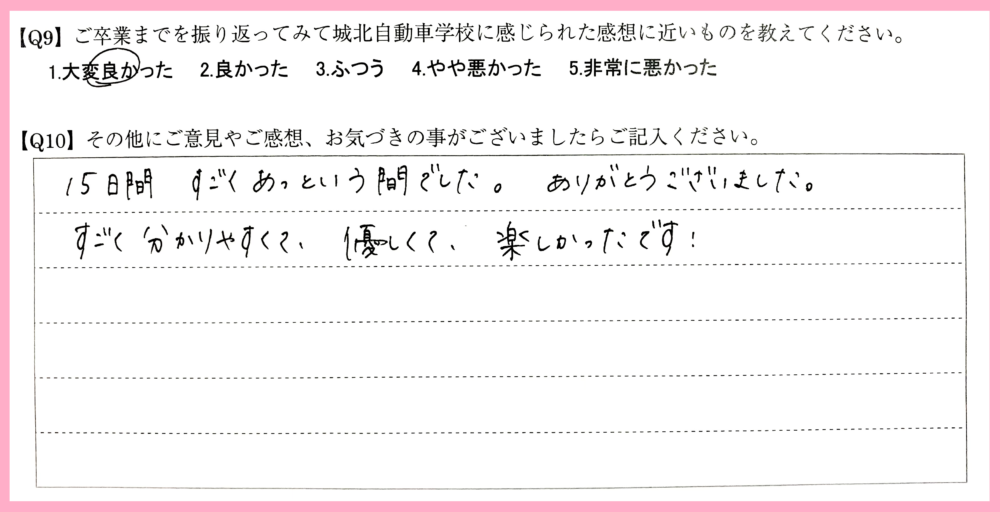 【Q9】ご卒業までを振り返ってみて城北自動車学校に感じられた感想に近いものを教えてください。
1.大変良かった 2.良かった 3.ふつう 4.やや悪かった 5.非常に悪かった
【Q10】その他にご意見やご感想、お気づきの事がございましたらご記入ください。
15日間 すごくあっという間でした。 ありがとうございました。
すごく分かりやすくて、優しくて、楽しかったです!